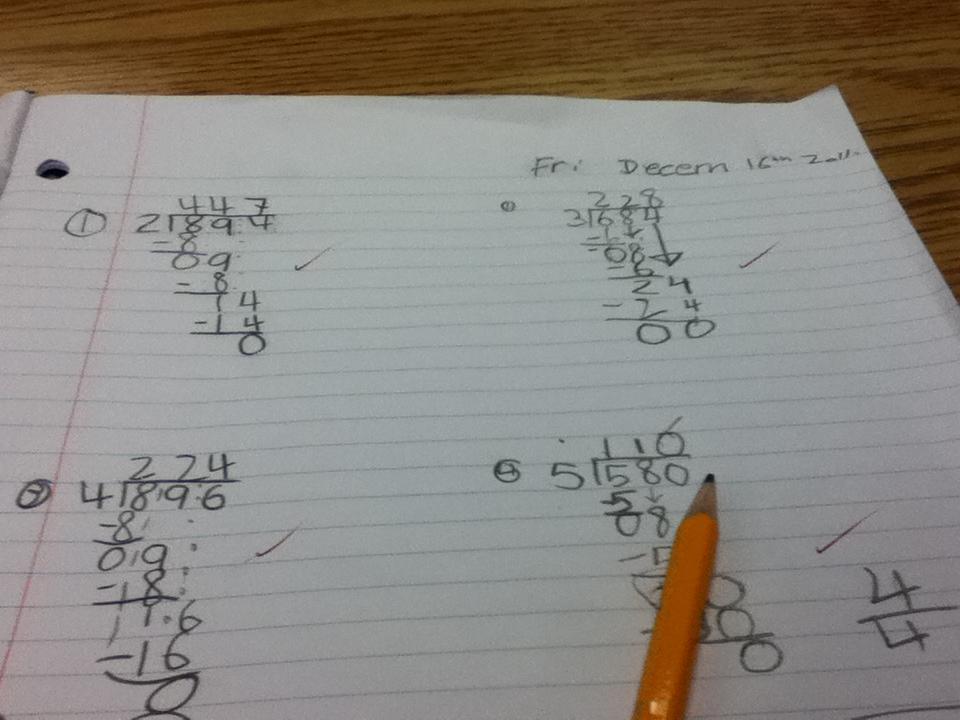 Fri: Decem 16th 2011
① 447
2)894
-8
09
-8
14
-14
0
228
3)684
08
-6
24
-24
00
224
4)896
-8
09
-18
16
-16
0
④ 110
5)580
-5
08
0
4
4